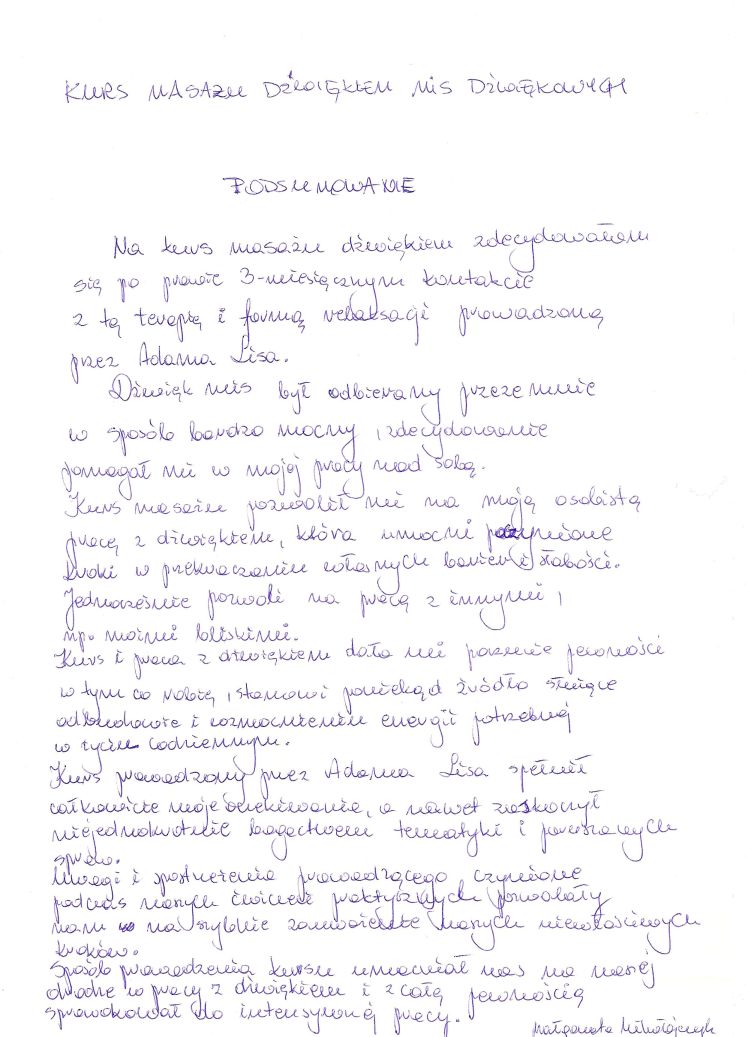 KURS MASAŻU DŹWIĘKIEM MIS DŹWIĘKOWYCH
PODSUMOWANIE
Na kurs masażu dźwiękiem zdecydowałam
się po prawie 3-miesięcznym kontakcie
z tą terapią i formą relaksacji prowadzoną
przez Adama Lisa.
Dźwięk mis był odbierany przeze mnie
w sposób bardzo mocny, zdecydowanie
pomagał mi w mojej pracy nad sobą.
Kurs masażu pozwolił mi na moją osobistą
pracę z dźwiękiem, która umocni poczynione
kroki w przekraczaniu własnych barier i słabości.
Jednocześnie pozwoli na pracę z innymi,
np. moimi bliskimi.
Kurs i praca z dźwiękiem dała mi poczucie pewności
w tym co robię, stanowi poniekąd źródło służące
odbudowie i wzmocnieniu energii potrzebnej
w życiu codziennym.
Kurs prowadzony przez Adama Lisa spełnił
całkowicie moje oczekiwania, a nawet zaskoczył
niejednokrotnie bogactwem tematyki i poruszanych
spraw.
Uwagi i spostrzeżenia prowadzącego czynione
podczas naszych ćwiczeń praktycznych pozwalały
nam na szybkie zauważenie naszych niewłaściwych
kroków.
Sposób prowadzenia kursu umacniał nas na naszej
drodze w pracy z dźwiękiem i z całą pewnością
sprowokował do intensywnej pracy.
Małgorzata Mikołajczyk